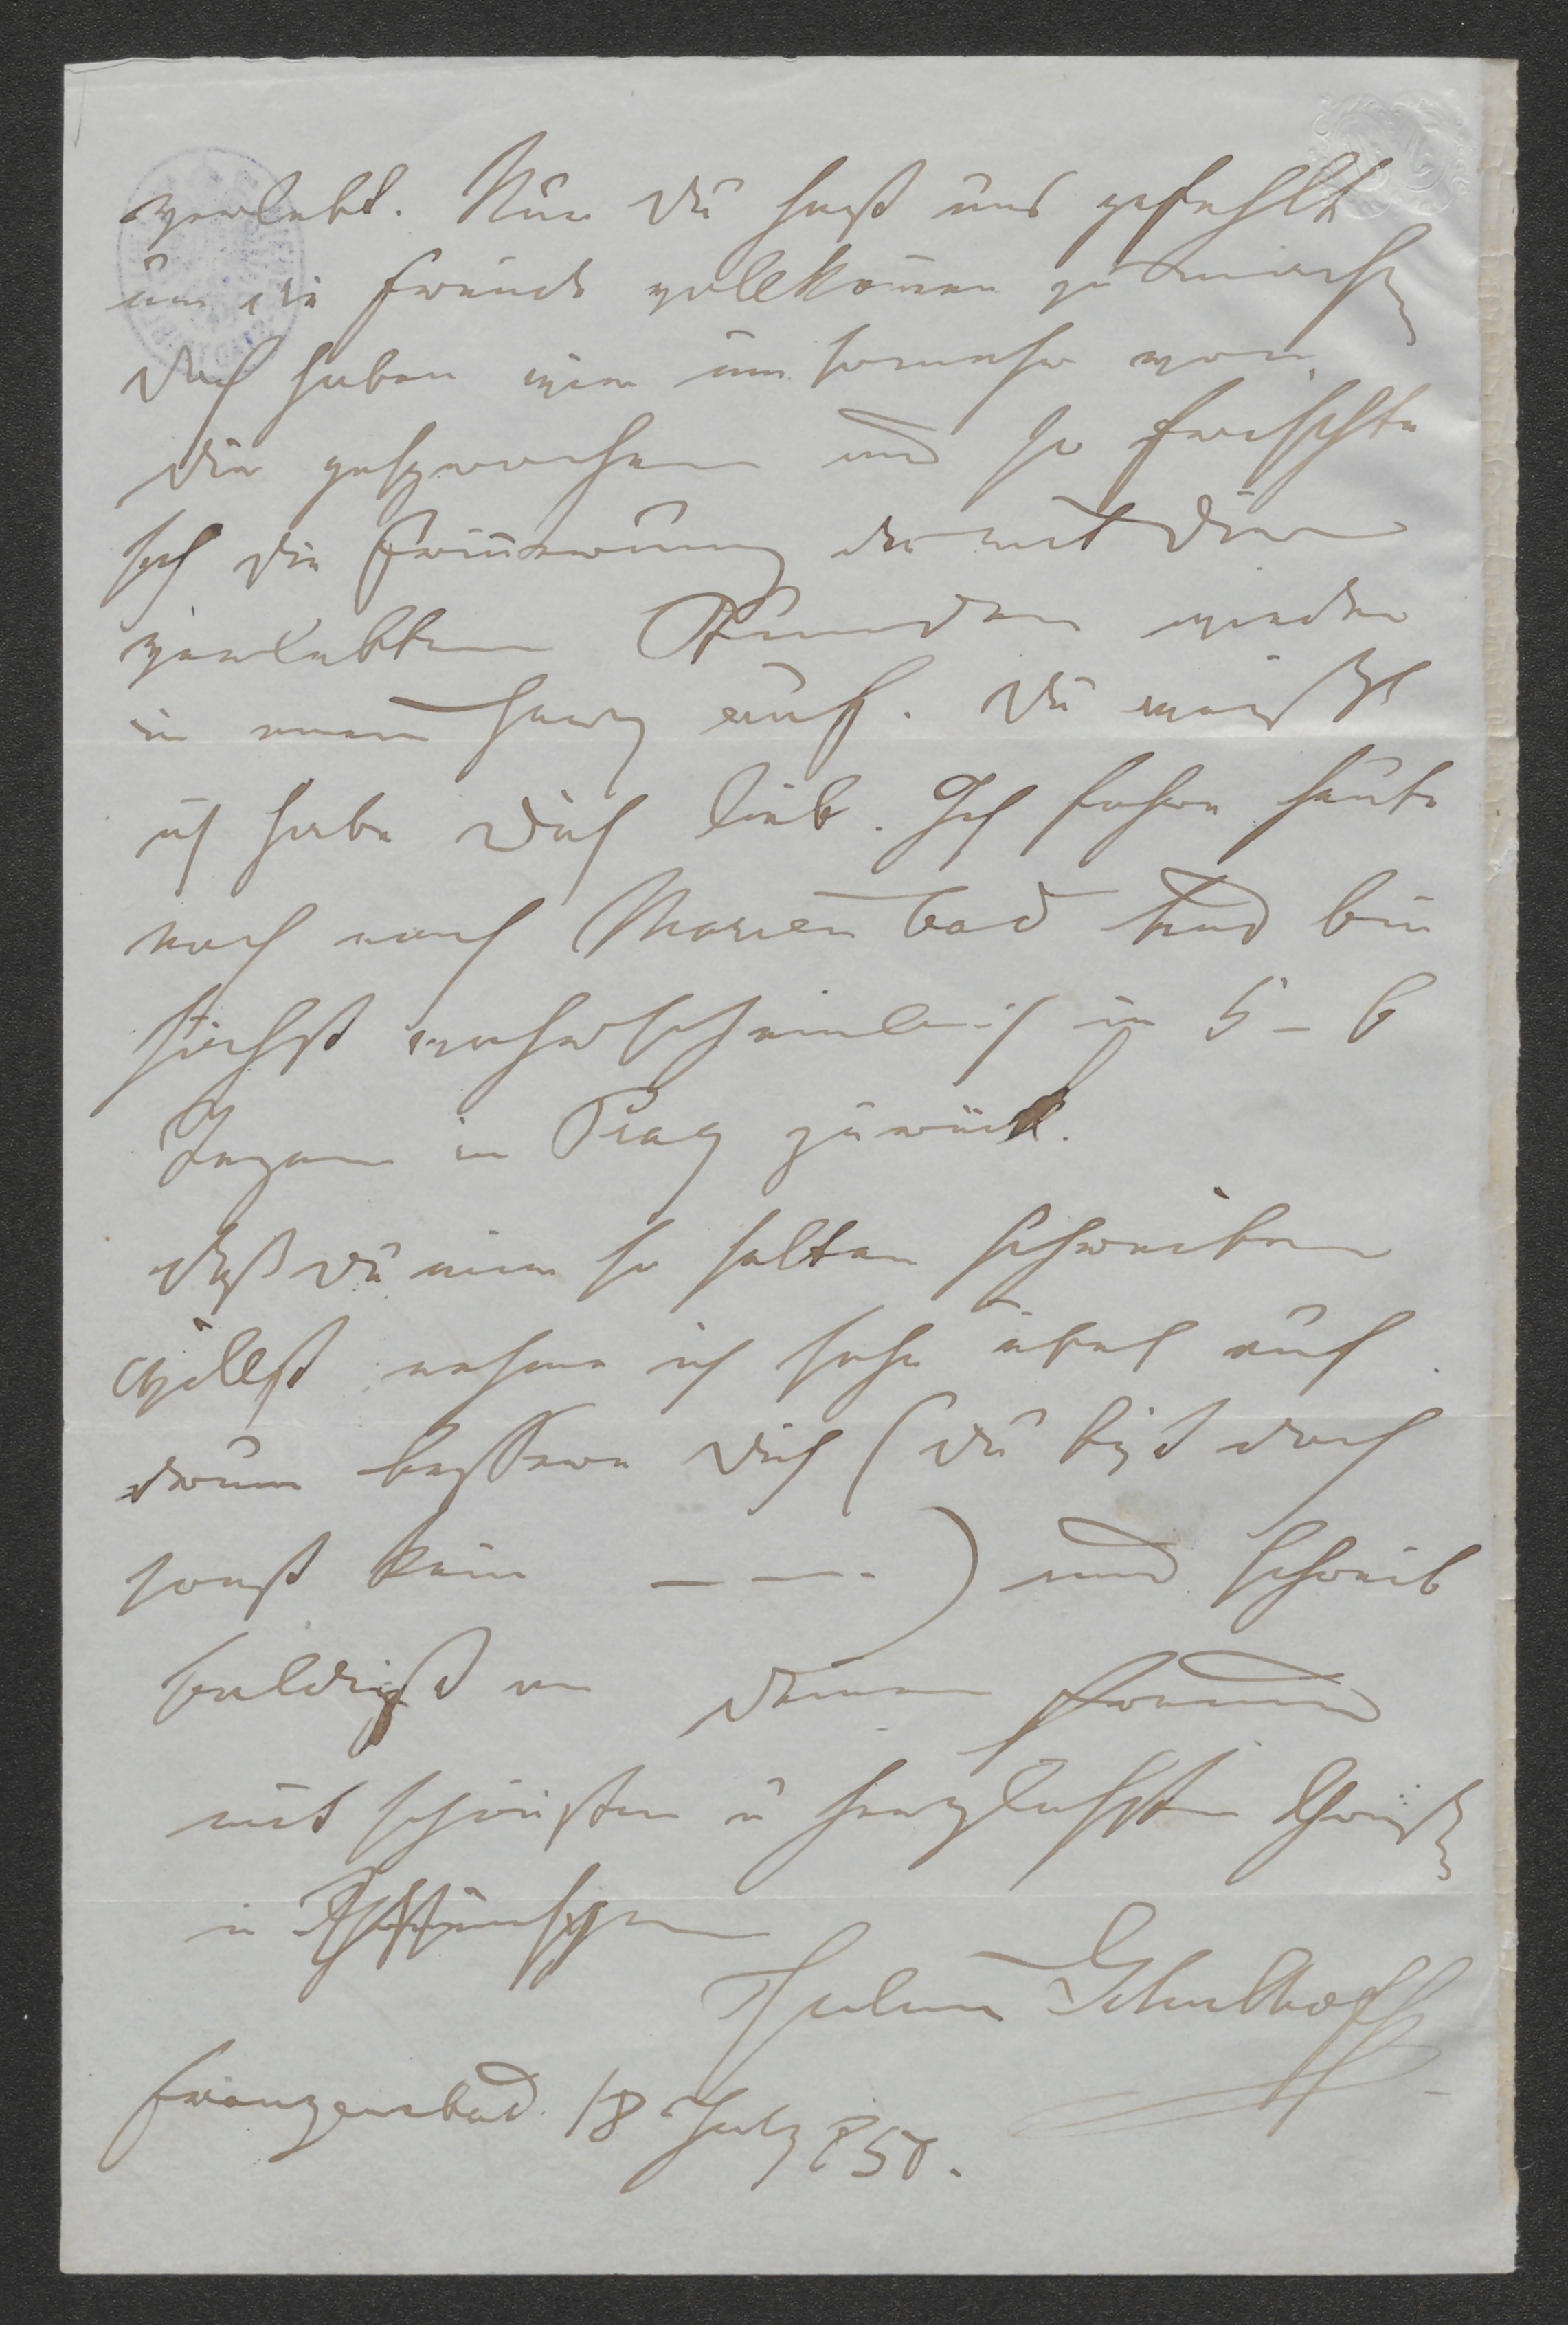 verlebt. Nur Du hast uns gefehlt
um die Freude vollkom̄en zu machen
doch haben wir um so mehr von
Dir gesprochen und so frischte
sich die Erin̄erung der mit Dir
verlebten Stunden wieder
in mein Herz auf. Du weißt
ich habe Dich lieb. Ich fahre heute
noch nach Marienbad und bin
höchst wahrscheinlich in 5 – 6
Tagen in Prag zurück.
Daß Du mir so selten schreiben
willst nehme ich sehr übel auf.
drum bessere Dich (Du bist doch
sonst kein – – – ) und schreib
baldigst an Deinen Freund
mit schönsten u herzlichsten Grüßen
u
Julius Schulhoff
Franzensbad 18 July 850.